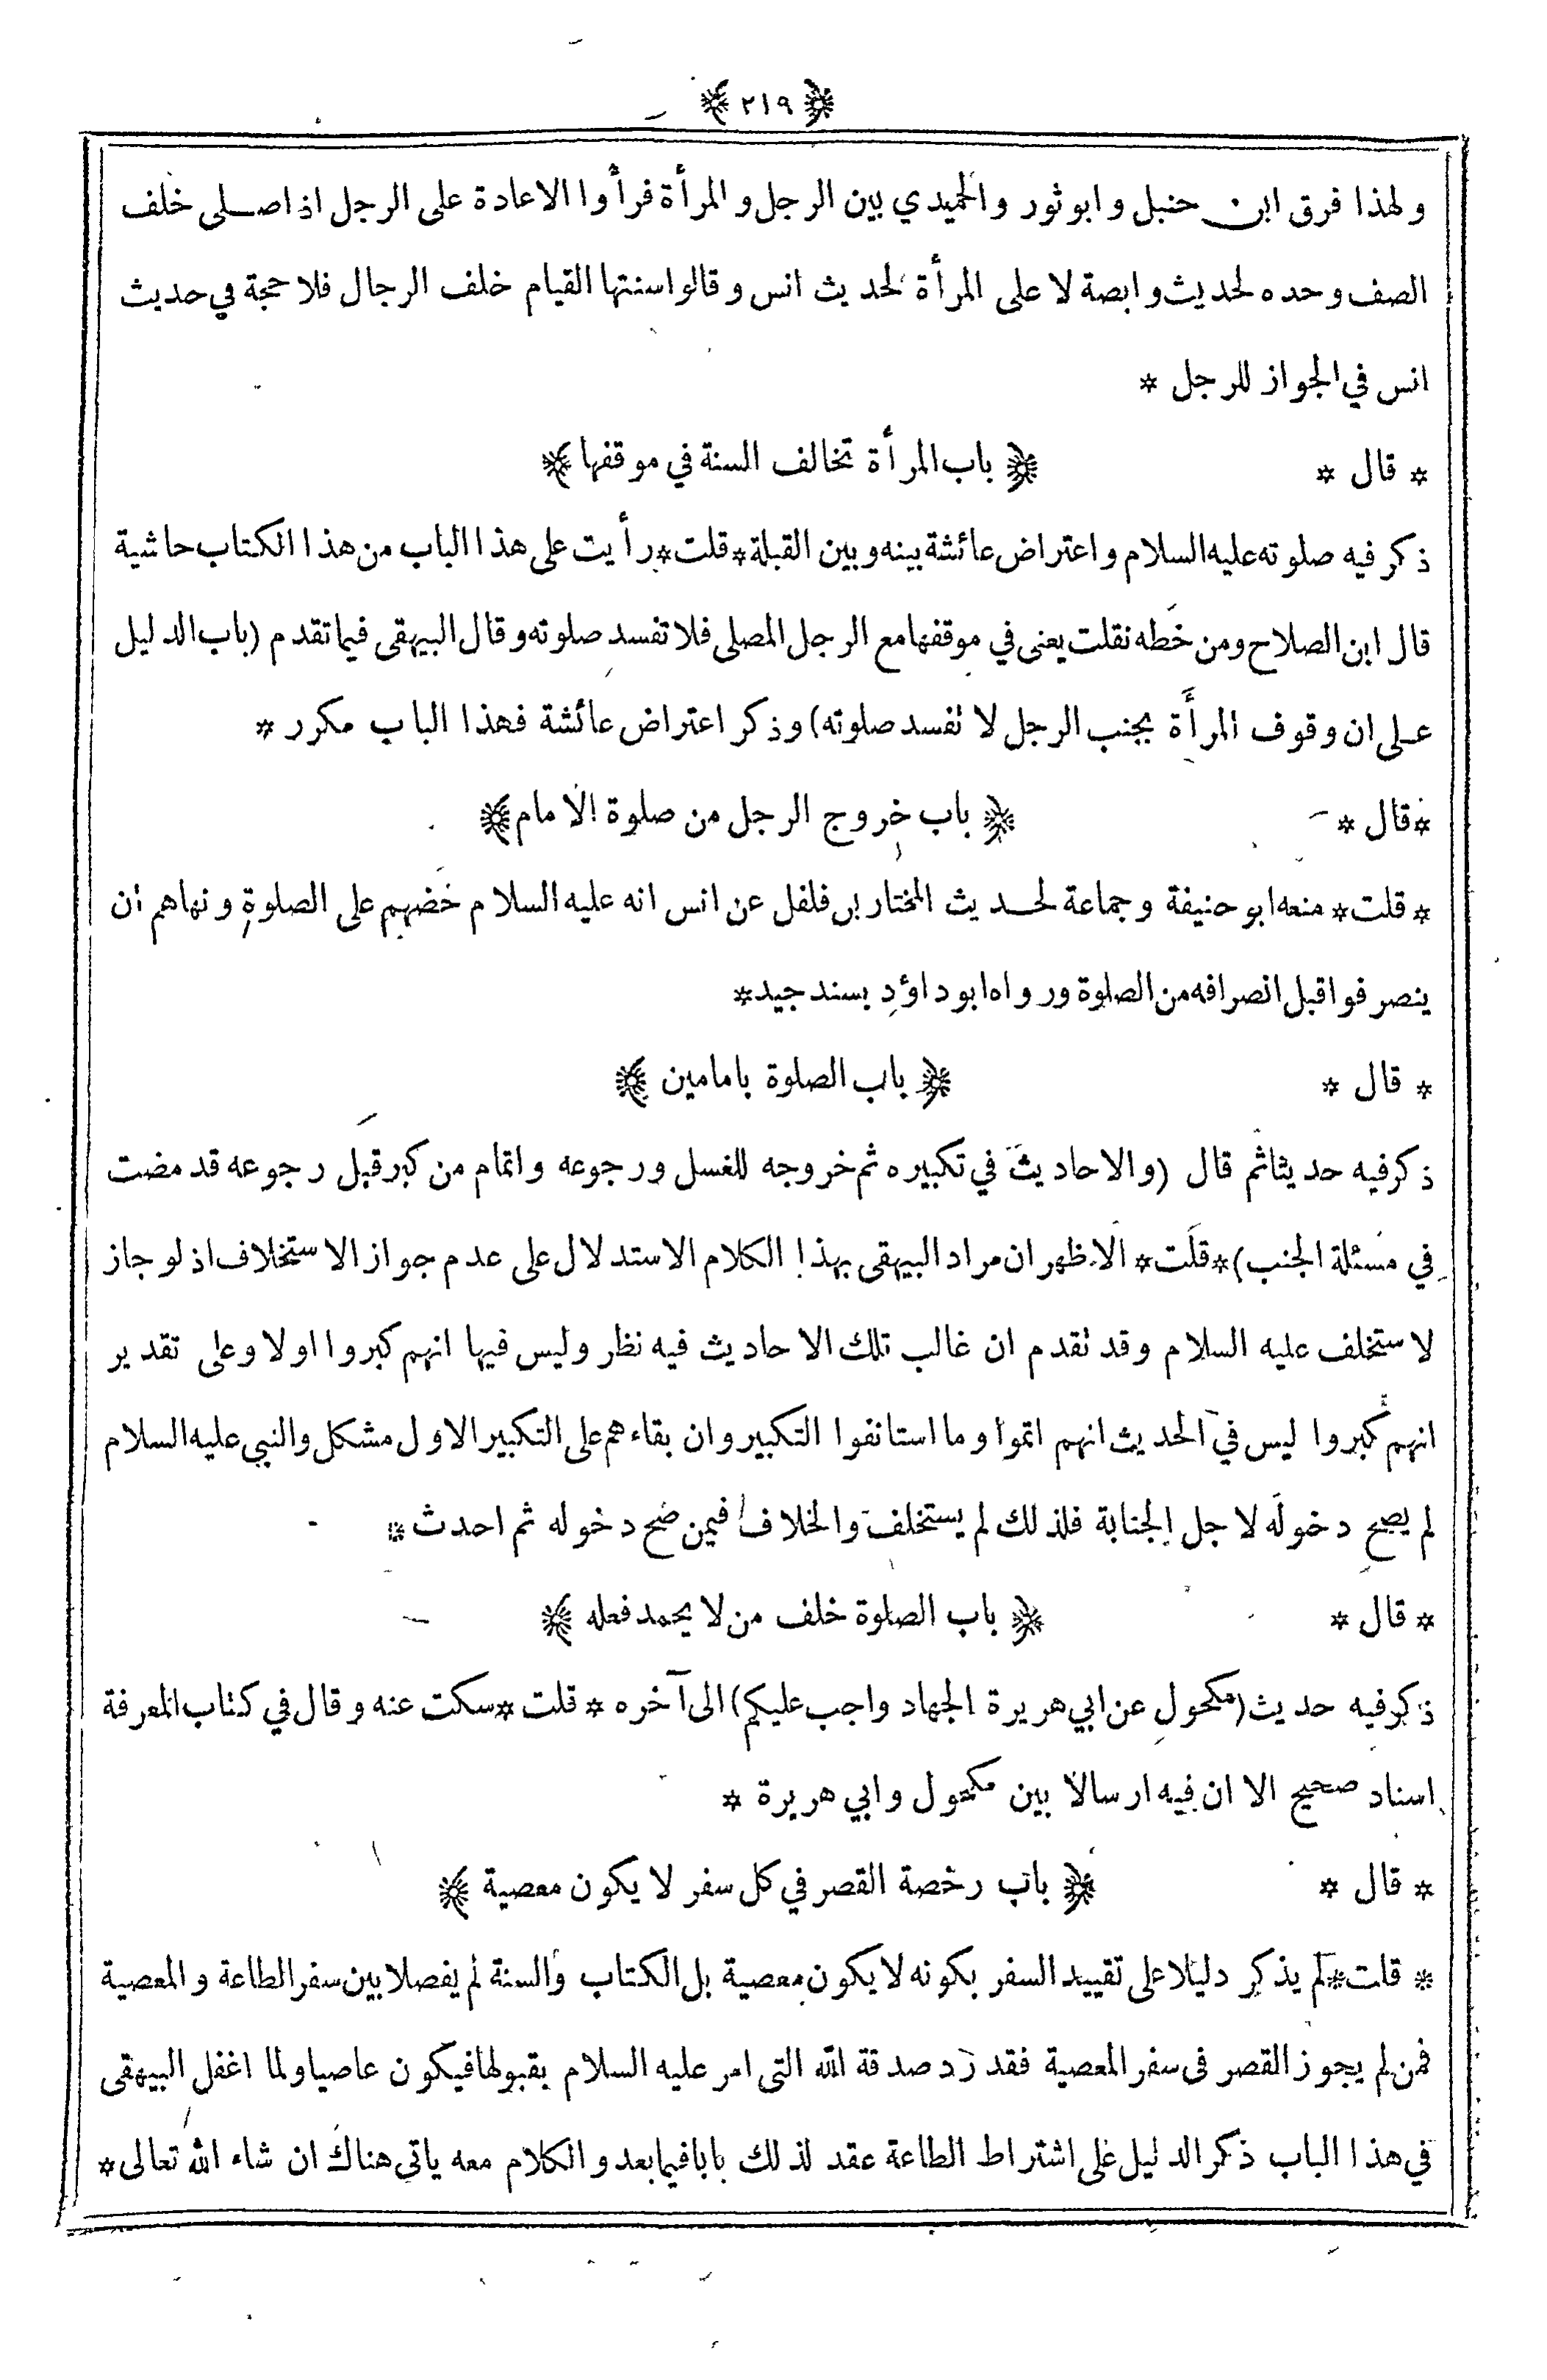 ﴿ ٢١٩ ﴾
ولهذا فرق ابن حنبل وابو ثور والحميدي بين الرجل والمرأة فرأوا الاعادة على الرجل اذا صلى خلف
الصف وحده لحديث وابصة لا على المرأة لحديث انس وقالوا سنتها القيام خلف الرجال فلا حجة في حديث
انس في الجواز للرجل *
* قال * ﴿ باب المرأة تخالف السنة في موقفها ﴾
ذكر فيه صلوته عليه السلام واعتراض عائشة بينه وبين القبلة * قلت * رأيت على هذا الباب من هذا الكتاب حاشية
قال ابن الصلاح ومن خطه نقلت يعنى في موقفها مع الرجل المصلى فلا تفسد صلوته وقال البيهقى فيما تقدم (باب الدليل
على ان وقوف المرأة بجنب الرجل لا تفسد صلوته) وذكر اعتراض عائشة فهذا الباب مكرر *
* قال * ﴿ باب خروج الرجل من صلوة الامام ﴾
* قلت * منعه ابو حنيفة وجماعة لحديث المختار بن فلفل عن انس انه عليه السلام حضهم على الصلوة ونهاهم ان
ينصرفوا قبل انصرافه من الصلوة ورواه ابو داؤد بسند جيد *
* قال * ﴿ باب الصلوة بامامين ﴾
ذكر فيه حديثا ثم قال (والاحاديث في تكبيره ثم خروجه للغسل ورجوعه واتمام من كبر قبل رجوعه قد مضت
في مسئلة الجنب) * قلت * الاظهر ان مراد البيهقى بهذا الكلام الاستدلال على عدم جواز الاستخلاف اذ لو جاز
لاستخلف عليه السلام وقد تقدم ان غالب تلك الاحاديث فيه نظر وليس فيها انهم كبروا اولا وعلى تقدير
انهم كبروا ليس في الحديث انهم اتموا وما استانفوا التكبير وان بقاءهم على التكبير الاول مشكل والنبي عليه السلام
لم يصح دخوله لاجل الجنابة فلذلك لم يستخلف والخلاف فيمن صح دخوله ثم احدث *
* قال * ﴿ باب الصلوة خلف من لا يحمد فعله ﴾
ذكر فيه حديث (مكحول عن ابي هريرة الجهاد واجب عليكم) الى آخره * قلت * سكت عنه وقال في كتاب المعرفة
اسناد صحيح الا ان فيه ارسالا بين مكحول وابي هريرة *
* قال * ﴿ باب رخصة القصر في كل سفر لا يكون معصية ﴾
* قلت * لم يذكر دليلا على تقييد السفر بكونه لا يكون معصية بل الكتاب والسنة لم يفصلا بين سفر الطاعة والمعصية
فمن لم يجوز القصر فى سفر المعصية فقد رد صدقة الله التى امر عليه السلام بقبولها فيكون عاصيا ولما اغفل البيهقى
في هذا الباب ذكر الدليل على اشتراط الطاعة عقد لذلك بابا فيما بعد والكلام معه ياتي هناك ان شاء الله تعالى *